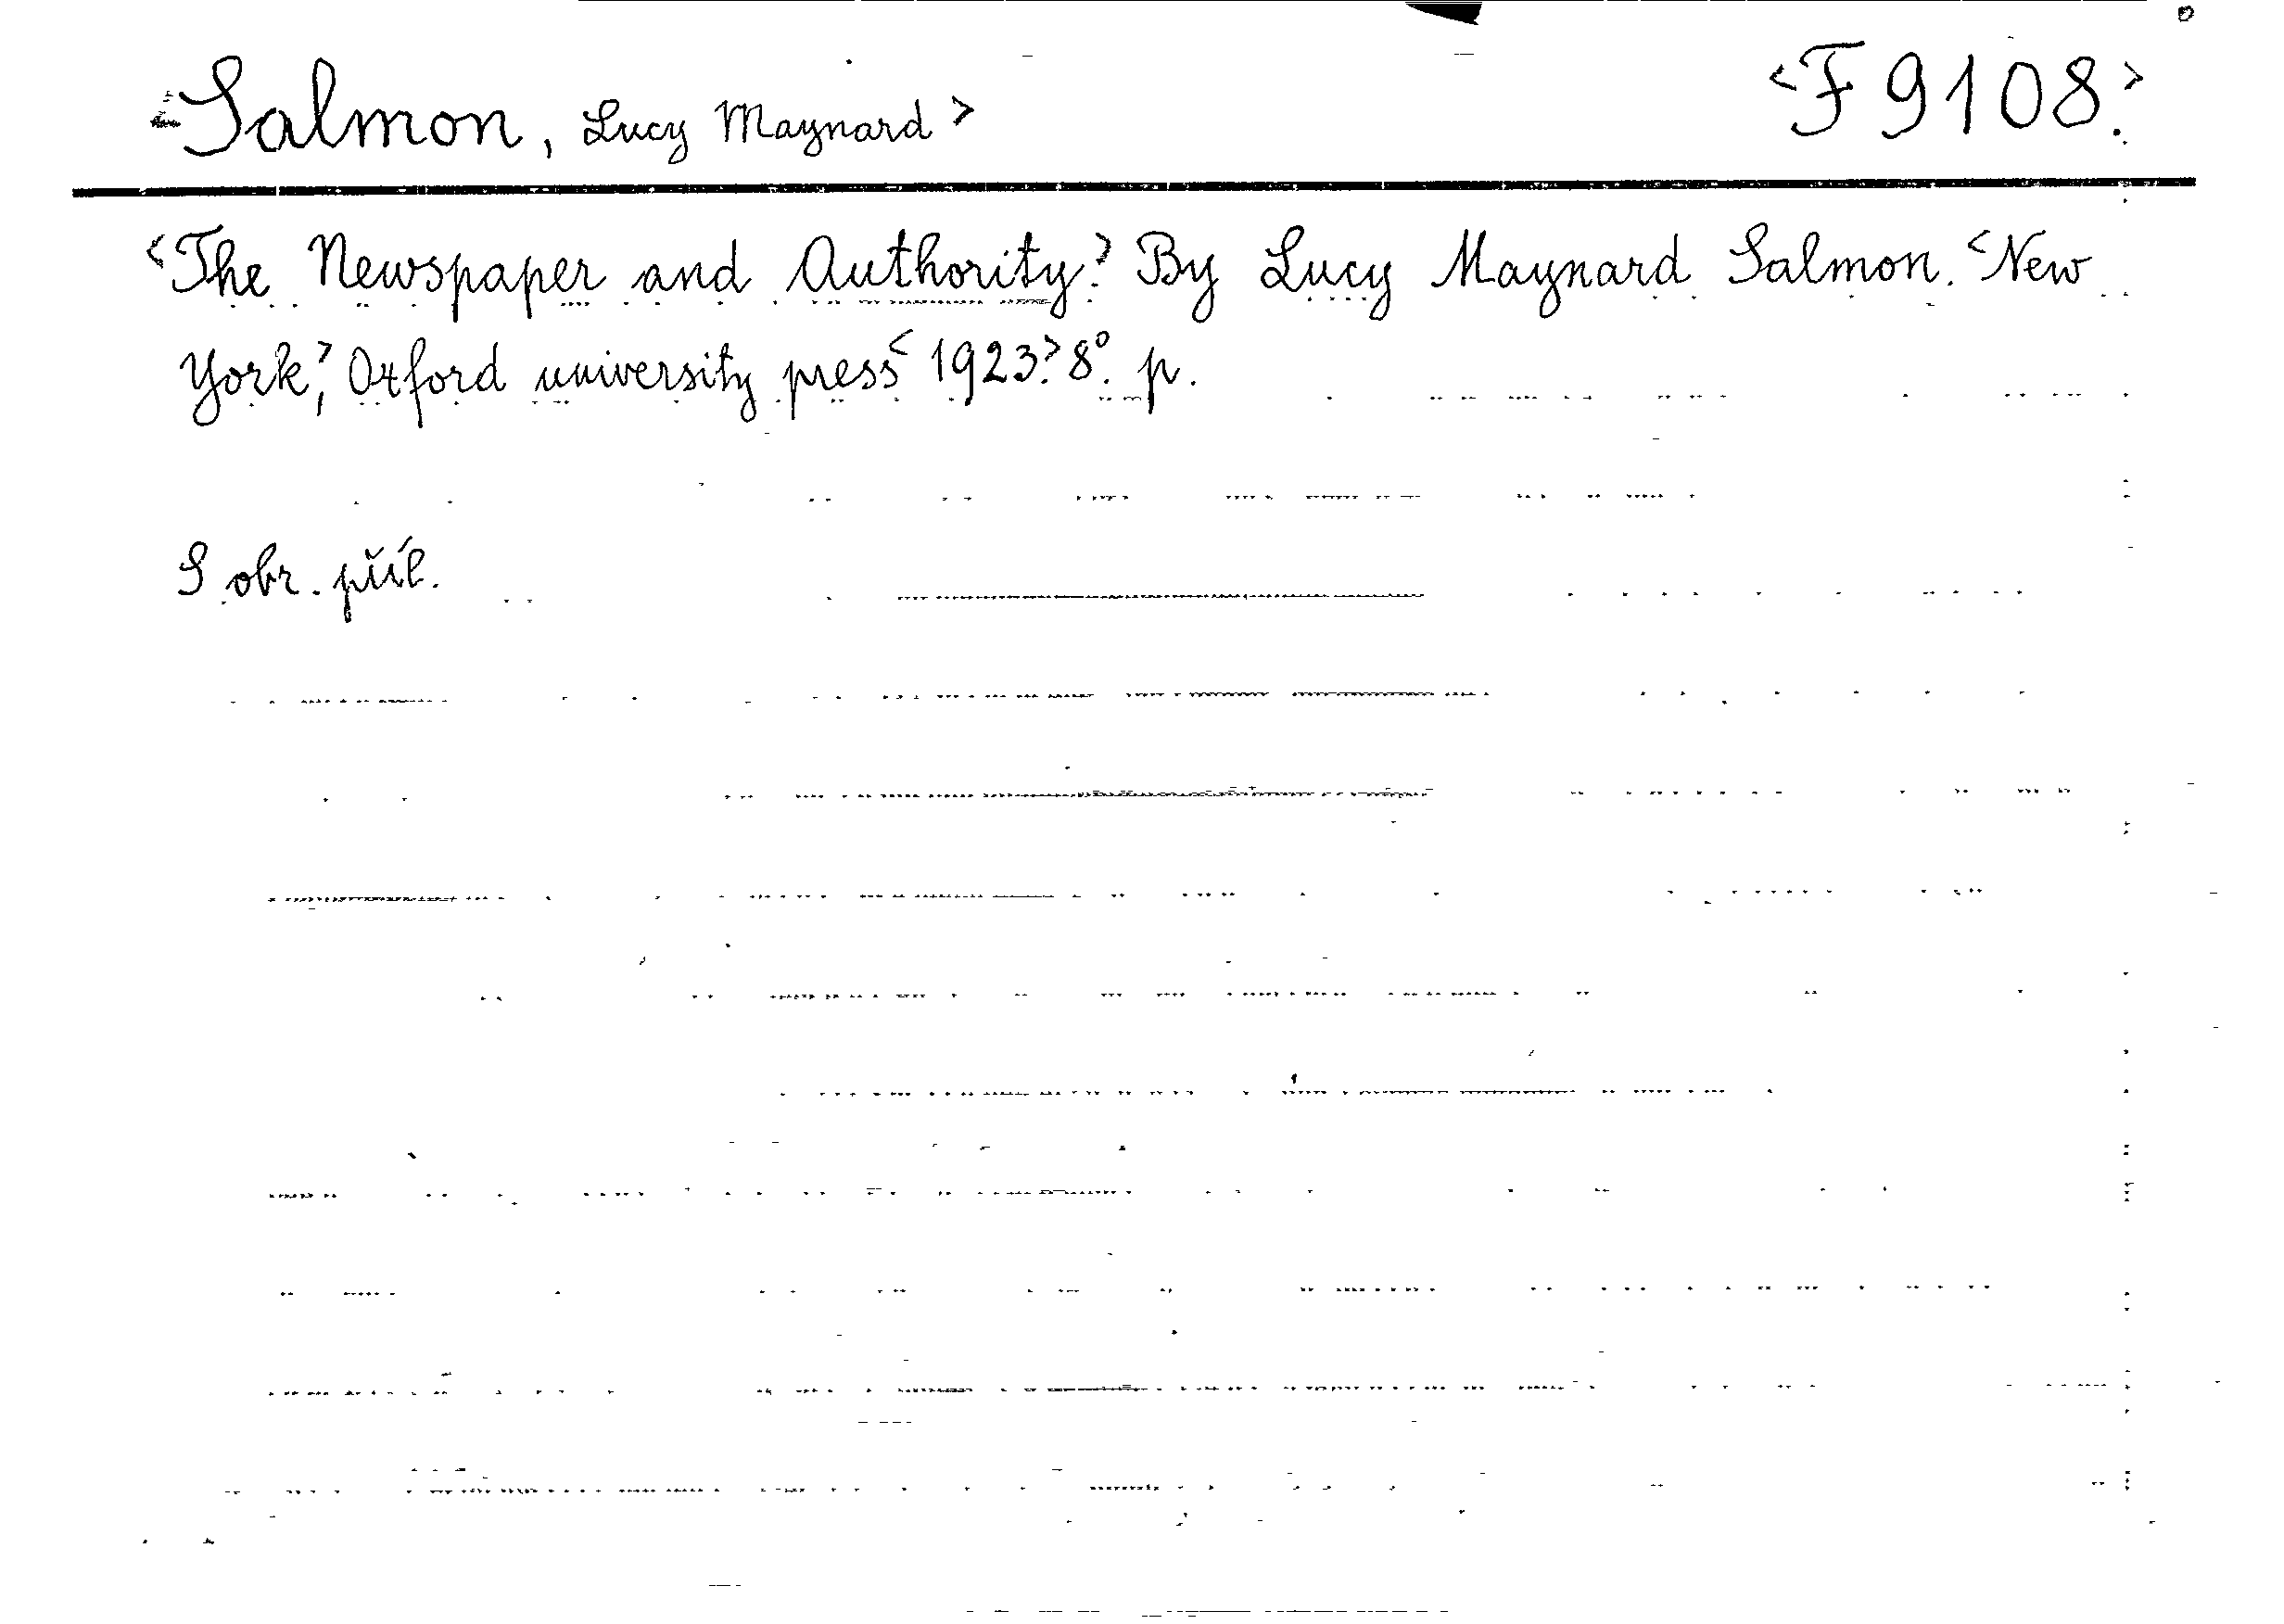 <Salmon, Lucy Maynard> <F 9108.>
<The Newspaper and Authority.> By Lucy Maynard Salmon. <New
York,> Oxford university press <1923.> 8°. p.
S obr. příl.